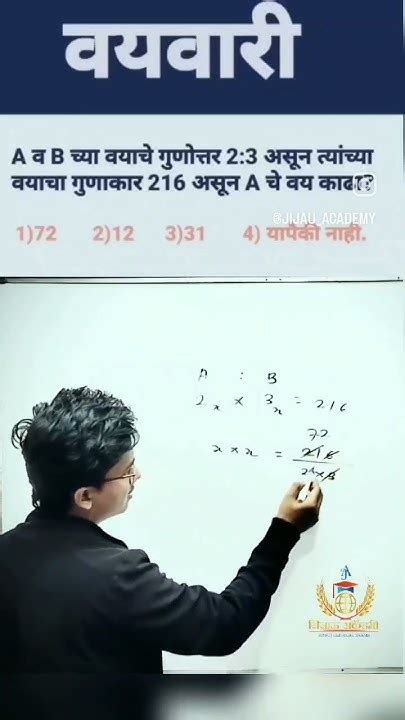 वयवारी
A व B च्या वयाचे गुणोत्तर 2:3 असून त्यांच्या
वयाचा गुणाकार 216 असून A चे वय काढा?
@JIJAU_ACADEMY
1)72 2)12 3)31 4) यापैकी नाही.
A : B
2x × 3x = 216
72
x × x = 216
2 × 3